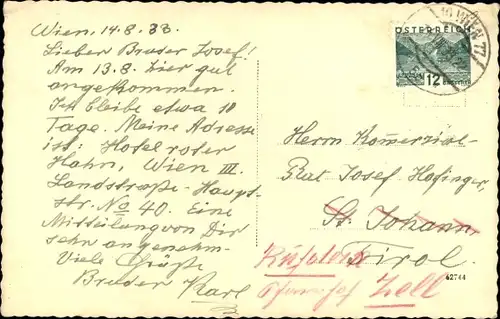 Wien, 14.8.33.
Lieber Bruder Josef!
Am 13.8. hier gut
angekommen.
Ich bleibe etwa 10
Tage. Meine Adresse
ist: Hotel roter
Hahn, Wien III.
Landstraße-Haupt-
str. No 40. Eine
Mitteilung von Dir
sehr angenehm.
Viele Grüße
Bruder Karl
WIEN
ÖSTERREICH
12
GROSCHEN
Herrn Komerzial-
Rat Josef Hofinger,
St. Johann,
Kufstein
Tirol
Zell
62744